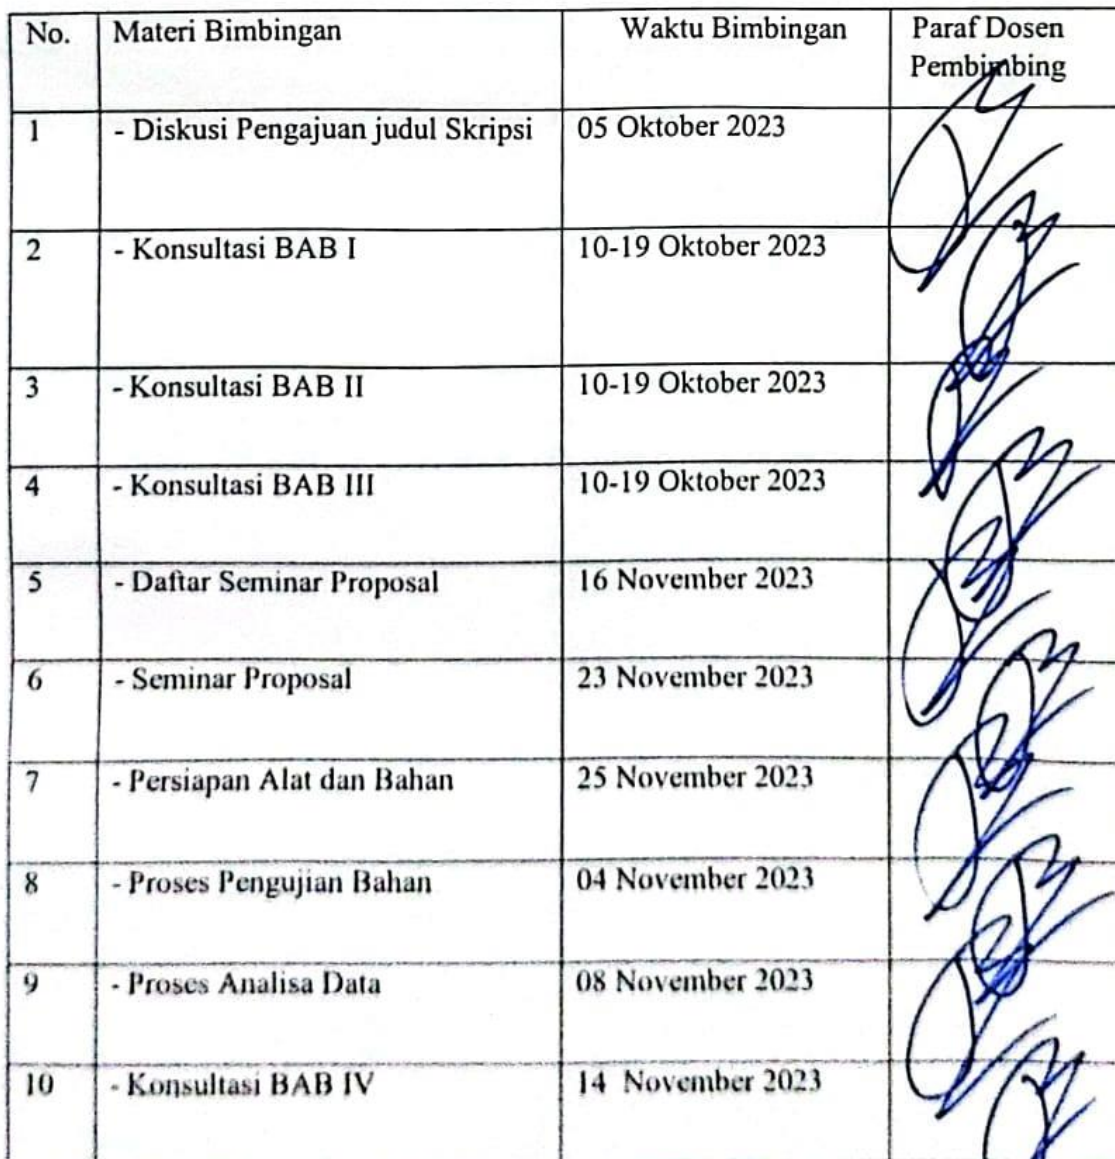 No. Materi Bimbingan Waktu Bimbingan Paraf Dosen
Pembimbing
1 - Diskusi Pengajuan judul Skripsi 05 Oktober 2023
2 - Konsultasi BAB I 10-19 Oktober 2023
3 - Konsultasi BAB II 10-19 Oktober 2023
4 - Konsultasi BAB III 10-19 Oktober 2023
5 - Daftar Seminar Proposal 16 November 2023
6 - Seminar Proposal 23 November 2023
7 - Persiapan Alat dan Bahan 25 November 2023
8 - Proses Pengujian Bahan 04 November 2023
9 - Proses Analisa Data 08 November 2023
10 - Konsultasi BAB IV 14 November 2023